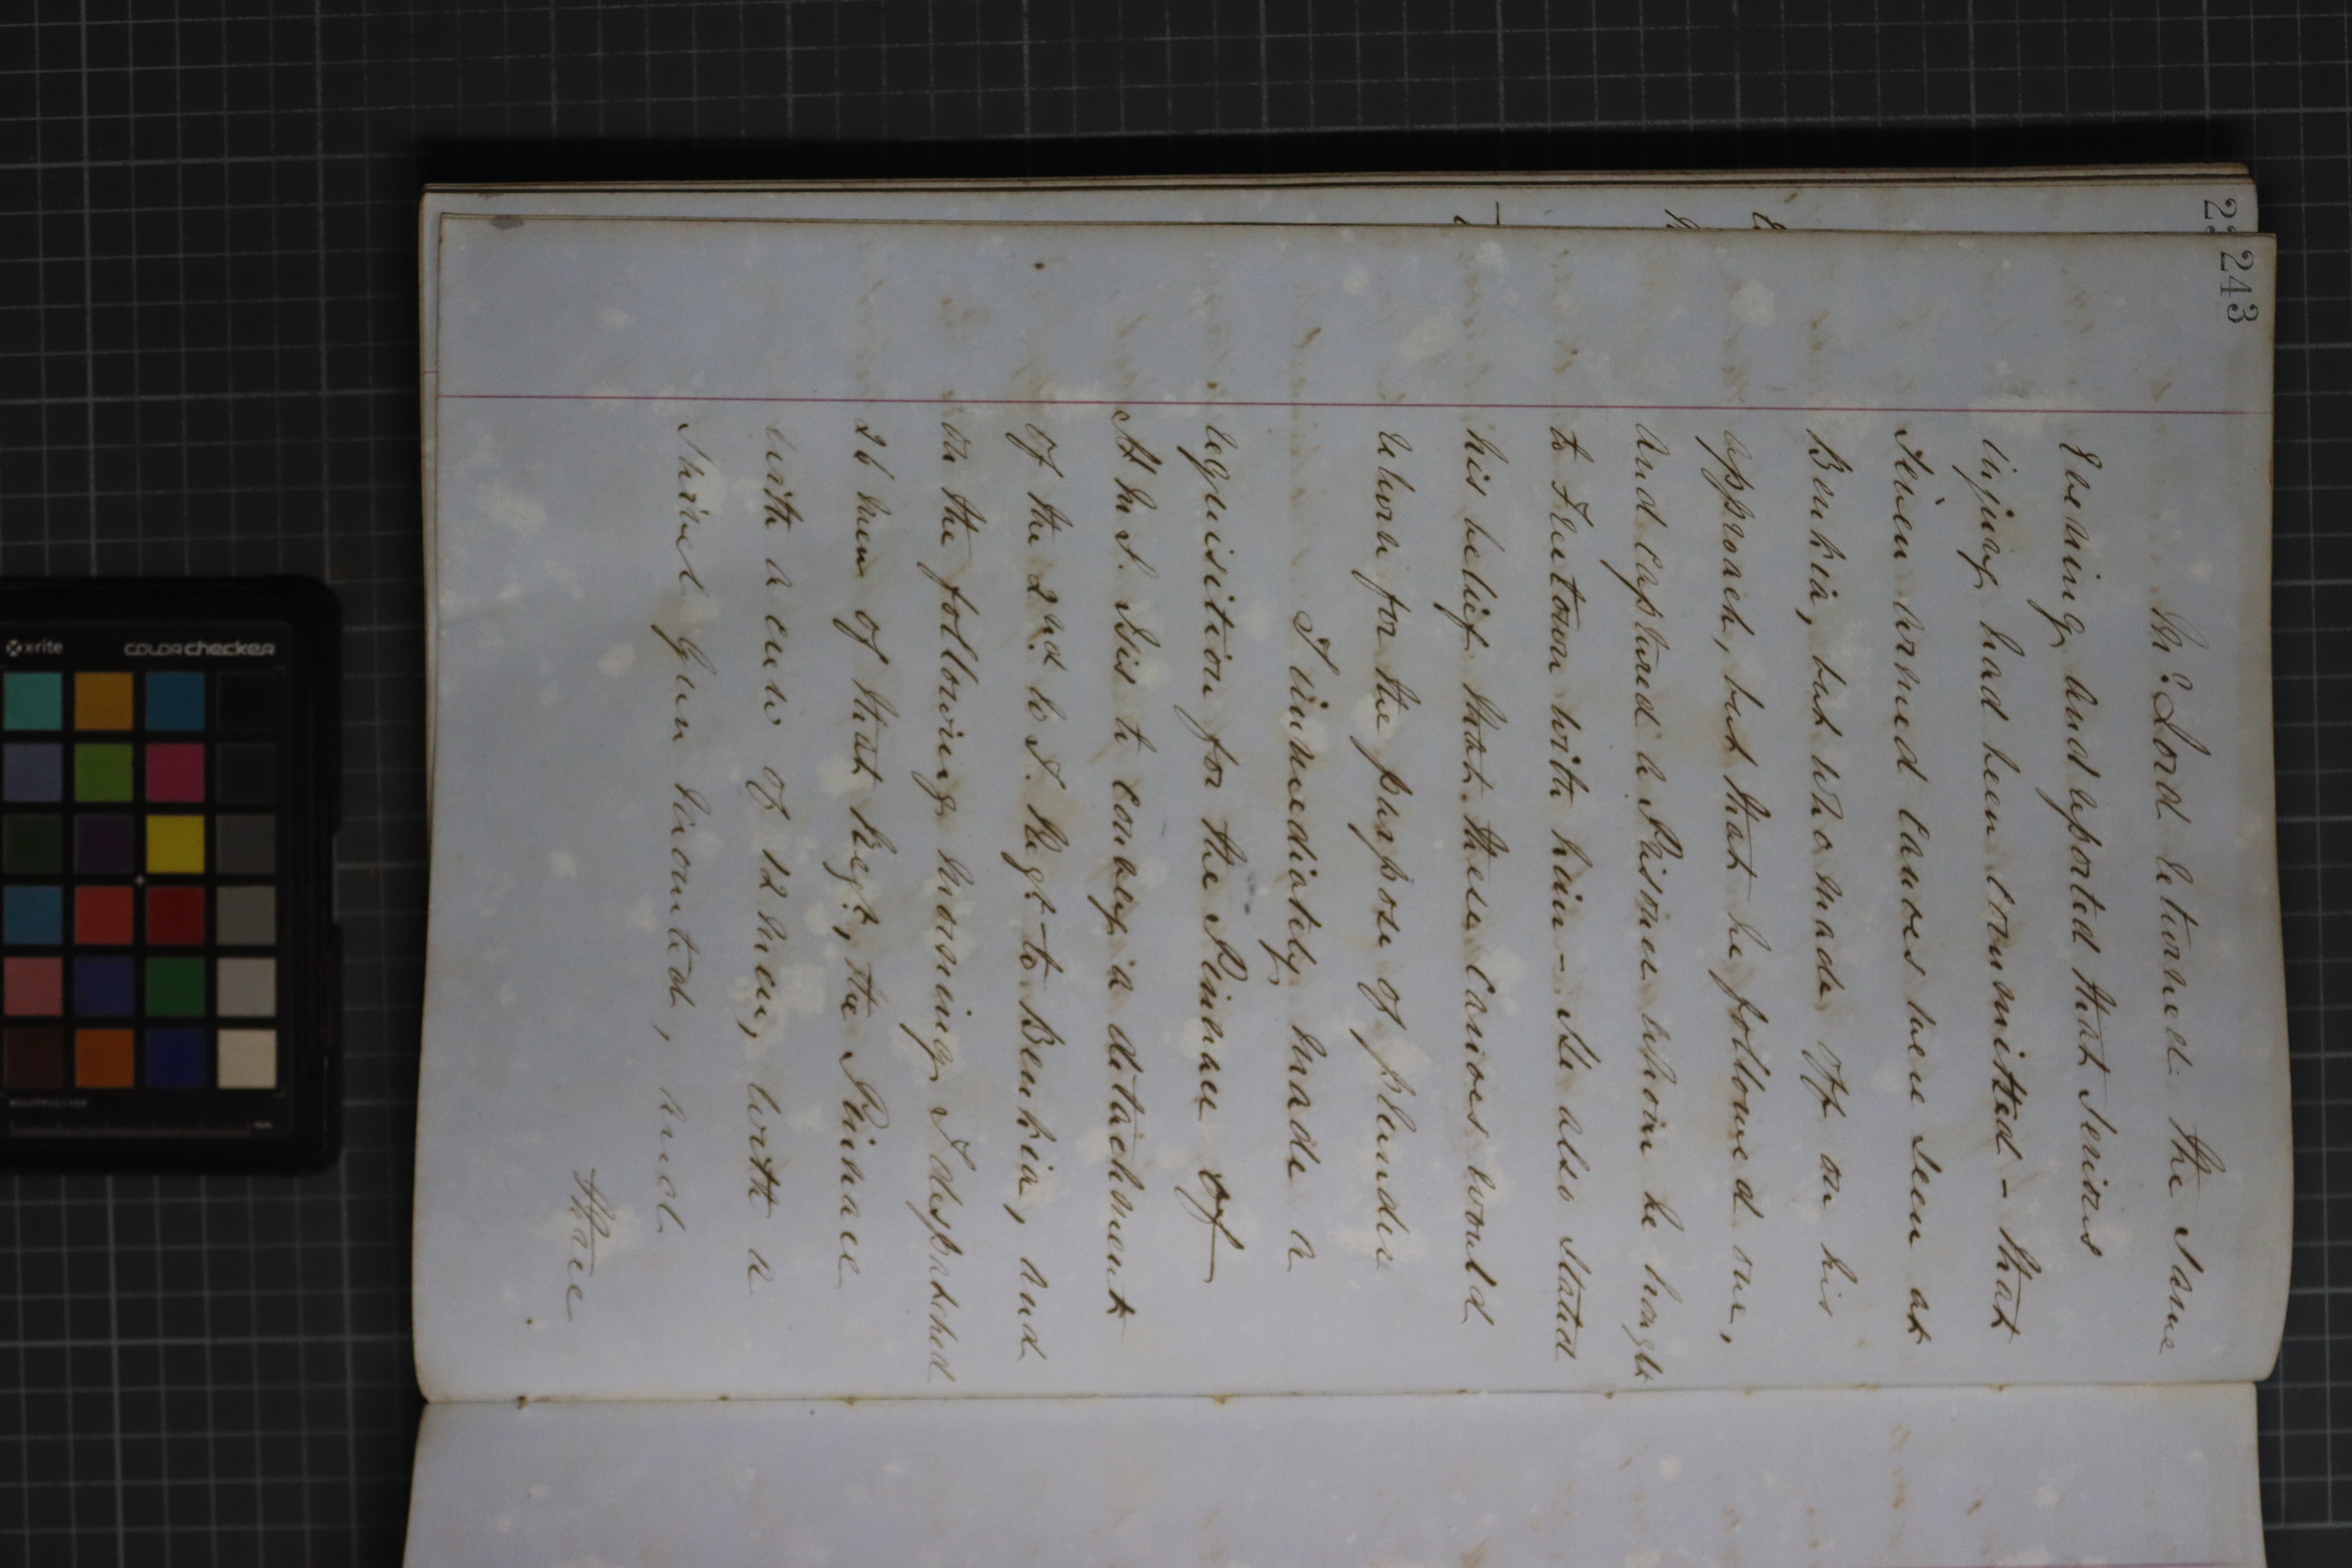 243
Mr. Lord returned the same
Evening and reported that serious
injury had been committed - that
seven armed canoes were seen at
Benkia, but who made off on his
approach, but that he followed one,
and captured a Prisoner whom he brought
to Freetown with him - He also stated
his belief that these Canoes would
return for the purpose of plunder
I immediately made a
requisition for the Pinnace of
H.M.S. Isis to convey a detachment
of the 2nd W.I. Regt. to Benkia, and
on the following morning I despatched
26 men of that Regt., the Pinnace
with a crew of 12 men, with a
swivel gun mounted, and
three